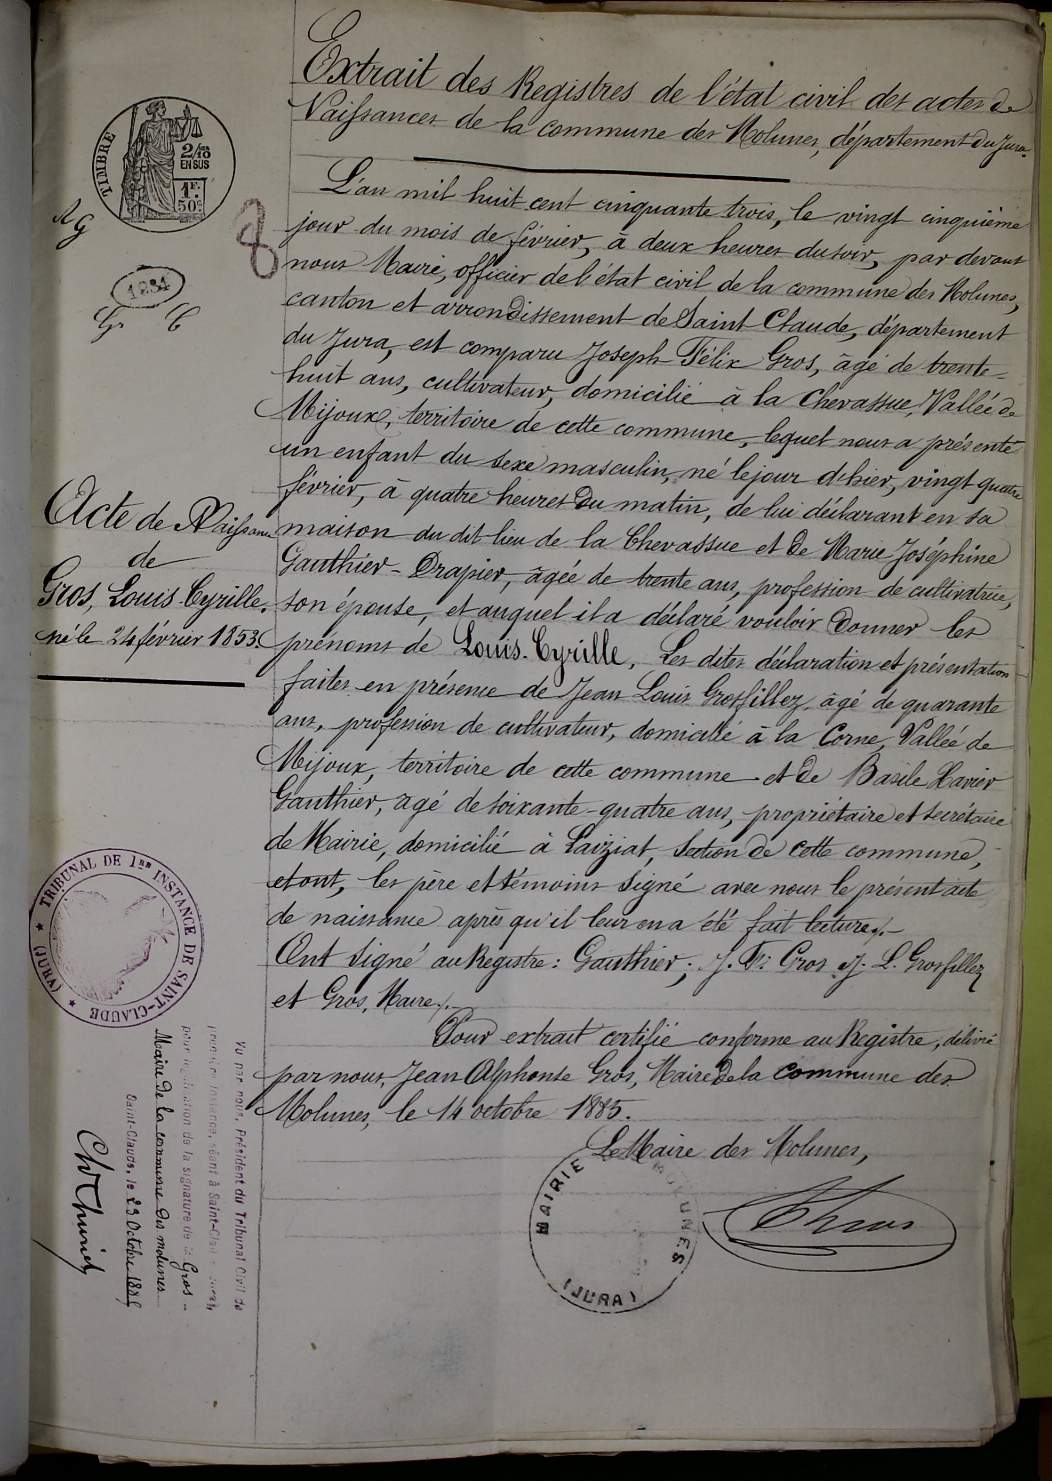 Extrait des Registres de l'état civil des actes de
Naissances de la commune des Molunes, département du Jura.
TIMBRE
2/10
EN SUS
1F.
50c
AG
8
1234
L'an mil huit cent cinquante trois, le vingt cinquième
jour du mois de février, à deux heures du soir, par devant
nous Maire, officier de l'état civil de la commune des Molunes,
canton et arrondissement de Saint-Claude, département
du Jura, est comparu Joseph-Félix Gros, âgé de trente-
huit ans, cultivateur, domicilié à la Chevassue, Vallée de
Mijoux, territoire de cette commune, lequel nous a présenté
un enfant du sexe masculin, né le jour d'hier, vingt quatre
février, à quatre heures du matin, de lui déclarant en sa
maison du dit lieu de la Chevassue et de Marie Joséphine
Gauthier-Drapier, âgée de trente ans, profession de cultivatrice,
son épouse, et auquel il a déclaré vouloir donner les
prénoms de Louis-Cyrille. Les dites déclaration et présentation
faites en présence de Jean Louis Grosfillez, âgé de quarante
ans, profession de cultivateur, domicilié à la Corne, Vallée de
Mijoux, territoire de cette commune et de Basile Xavier
Gauthier, âgé de soixante-quatre ans, propriétaire et secrétaire
de Mairie, domicilié à Laiziat, Section de cette commune,
et ont, les père et témoins signé avec nous le présent acte
de naissance après qu'il leur en a été fait lecture./.
Ont signé au Registre: Gauthier; J. F. Gros J. L. Grosfillez
et Gros, Maire./.
Pour extrait certifié conforme au Registre, délivré
par nous, Jean Alphonse Gros, Maire de la commune des
Molunes, le 14 octobre 1885.
Le Maire des Molunes,
MAIRIE MOLUNES
(JURA)
Acte de Naissance
de
Gros, Louis-Cyrille,
né le 24 février 1853.
TRIBUNAL DE 1RE INSTANCE DE SAINT-CLAUDE
★ (JURA) ★
Vu par nous, Président du Tribunal Civil de
première instance, séant à Saint-Claude, Jura,
pour légalisation de la signature de M Gros
Maire de la commune des Molunes
Saint-Claude, le 23 Octobre 1885